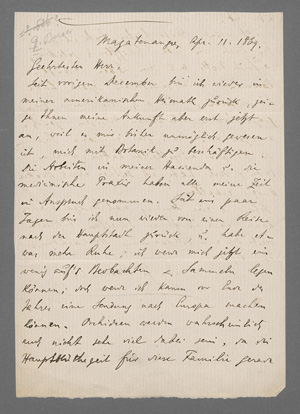 Mazatenango, Apr. 11. 1869.
Geehrtester Herr.
Seit vorigem December bin ich wieder in
meiner amerikanischen Heimath zurück, zei-
ge Ihnen meine Ankunft aber erst jetzt
an, weil es mir bisher unmöglich gewesen
ist, mich mit Botanik zu beschäftigen.
Die Arbeiten in meiner Hacienda u. die
medicinische Praxis haben alle meine Zeit
in Anspruch genommen. Seit ein paar
Tagen bin ich nun wieder von einer Reise
nach der Hauptstadt zurück, u. habe et-
was mehr Ruhe; ich werde mich jetzt ein
wenig aufs Beobachten u. Sammeln legen
können; doch werde ich kaum vor Ende des
Jahres eine Sendung nach Europa machen
können. Orchideen werden wahrscheinlich
auch nicht sehr viel dabei sein, da die
Hauptblüthezeit für diese Familie gerade